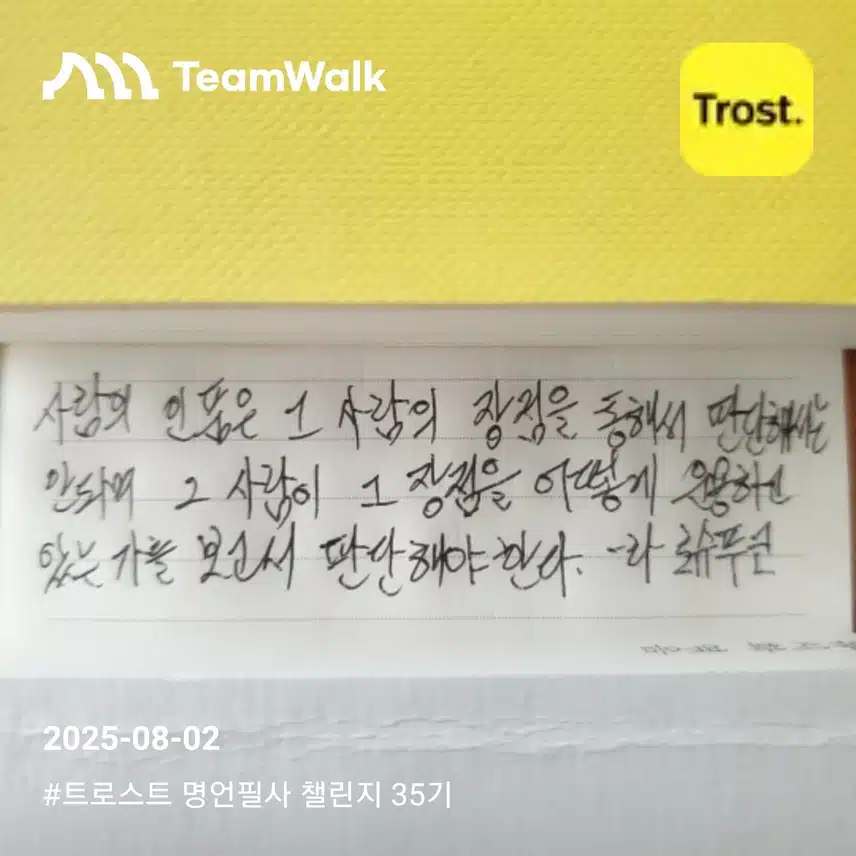 TeamWalk
Trost.
사람의 인품은 그 사람의 장점을 통해서 판단해서는
안되며 그 사람이 그 장점을 어떻게 운용하고
있는가를 보고서 판단해야 한다. -라 로슈푸코
2025-08-02
#트로스트 명언필사 챌린지 35기